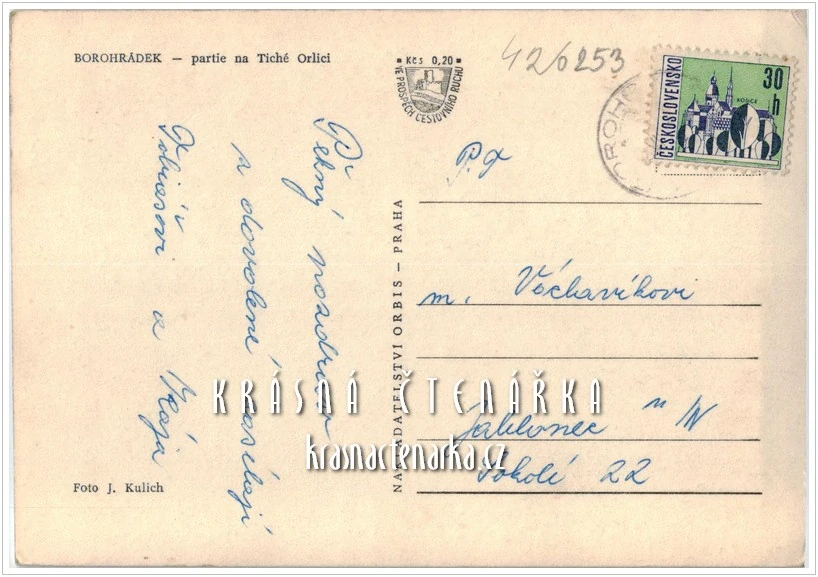 BOROHRÁDEK — partie na Tiché Orlici
Kčs 0,20
VE PROSPĚCH CESTOVNÍHO RUCHU
426253
ČESKOSLOVENSKO
30 h
KOŠICE
BOROH
Pěkný pozdrav
z dovolené zasílají
Tobiášovi a Mája
NAKLADATELSTVÍ ORBIS — PRAHA
P.T
m. Václavíkovi
Jablonec n/N
Sokolí 22
KRÁSNÁ ČTENÁŘKA
krasnactenarka.cz
Foto J. Kulich